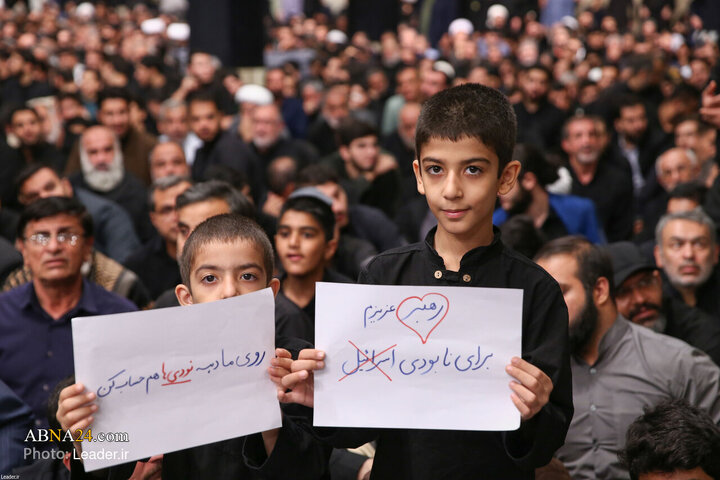 رهبر عزیزم
برای نابودی اسرائیل
روی ما دهه نودی‌ها هم حساب کن
ABNA24.com
Photo: Leader.ir
Leader.ir